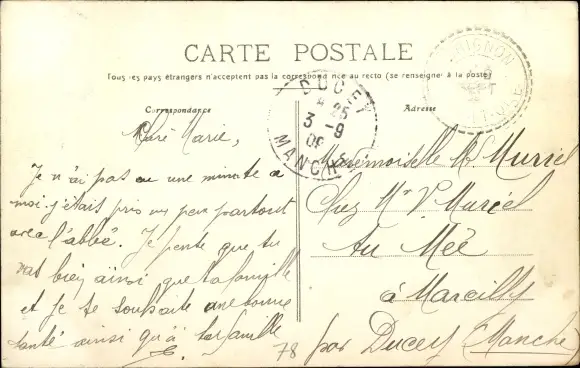 CARTE POSTALE
Tous les pays étrangers n'acceptent pas la correspondance au recto (se renseigner à la poste)
Correspondance
Adresse
GRIGNON
DUCEY
8 25
3 -9
06
MANCHE
Marie,
Je n'ai pas eu une minute a
moi j'étais pris un peu partout
avec l'abbé. Je pense que tu
vas bien ainsi que ta famille
et je te souhaite une bonne
santé ainsi qu'à ta famille
Mademoiselle M Muriel
Chez Mr V. Muriel
Au Mée
à Marcilly
par Ducey (Manche)
78